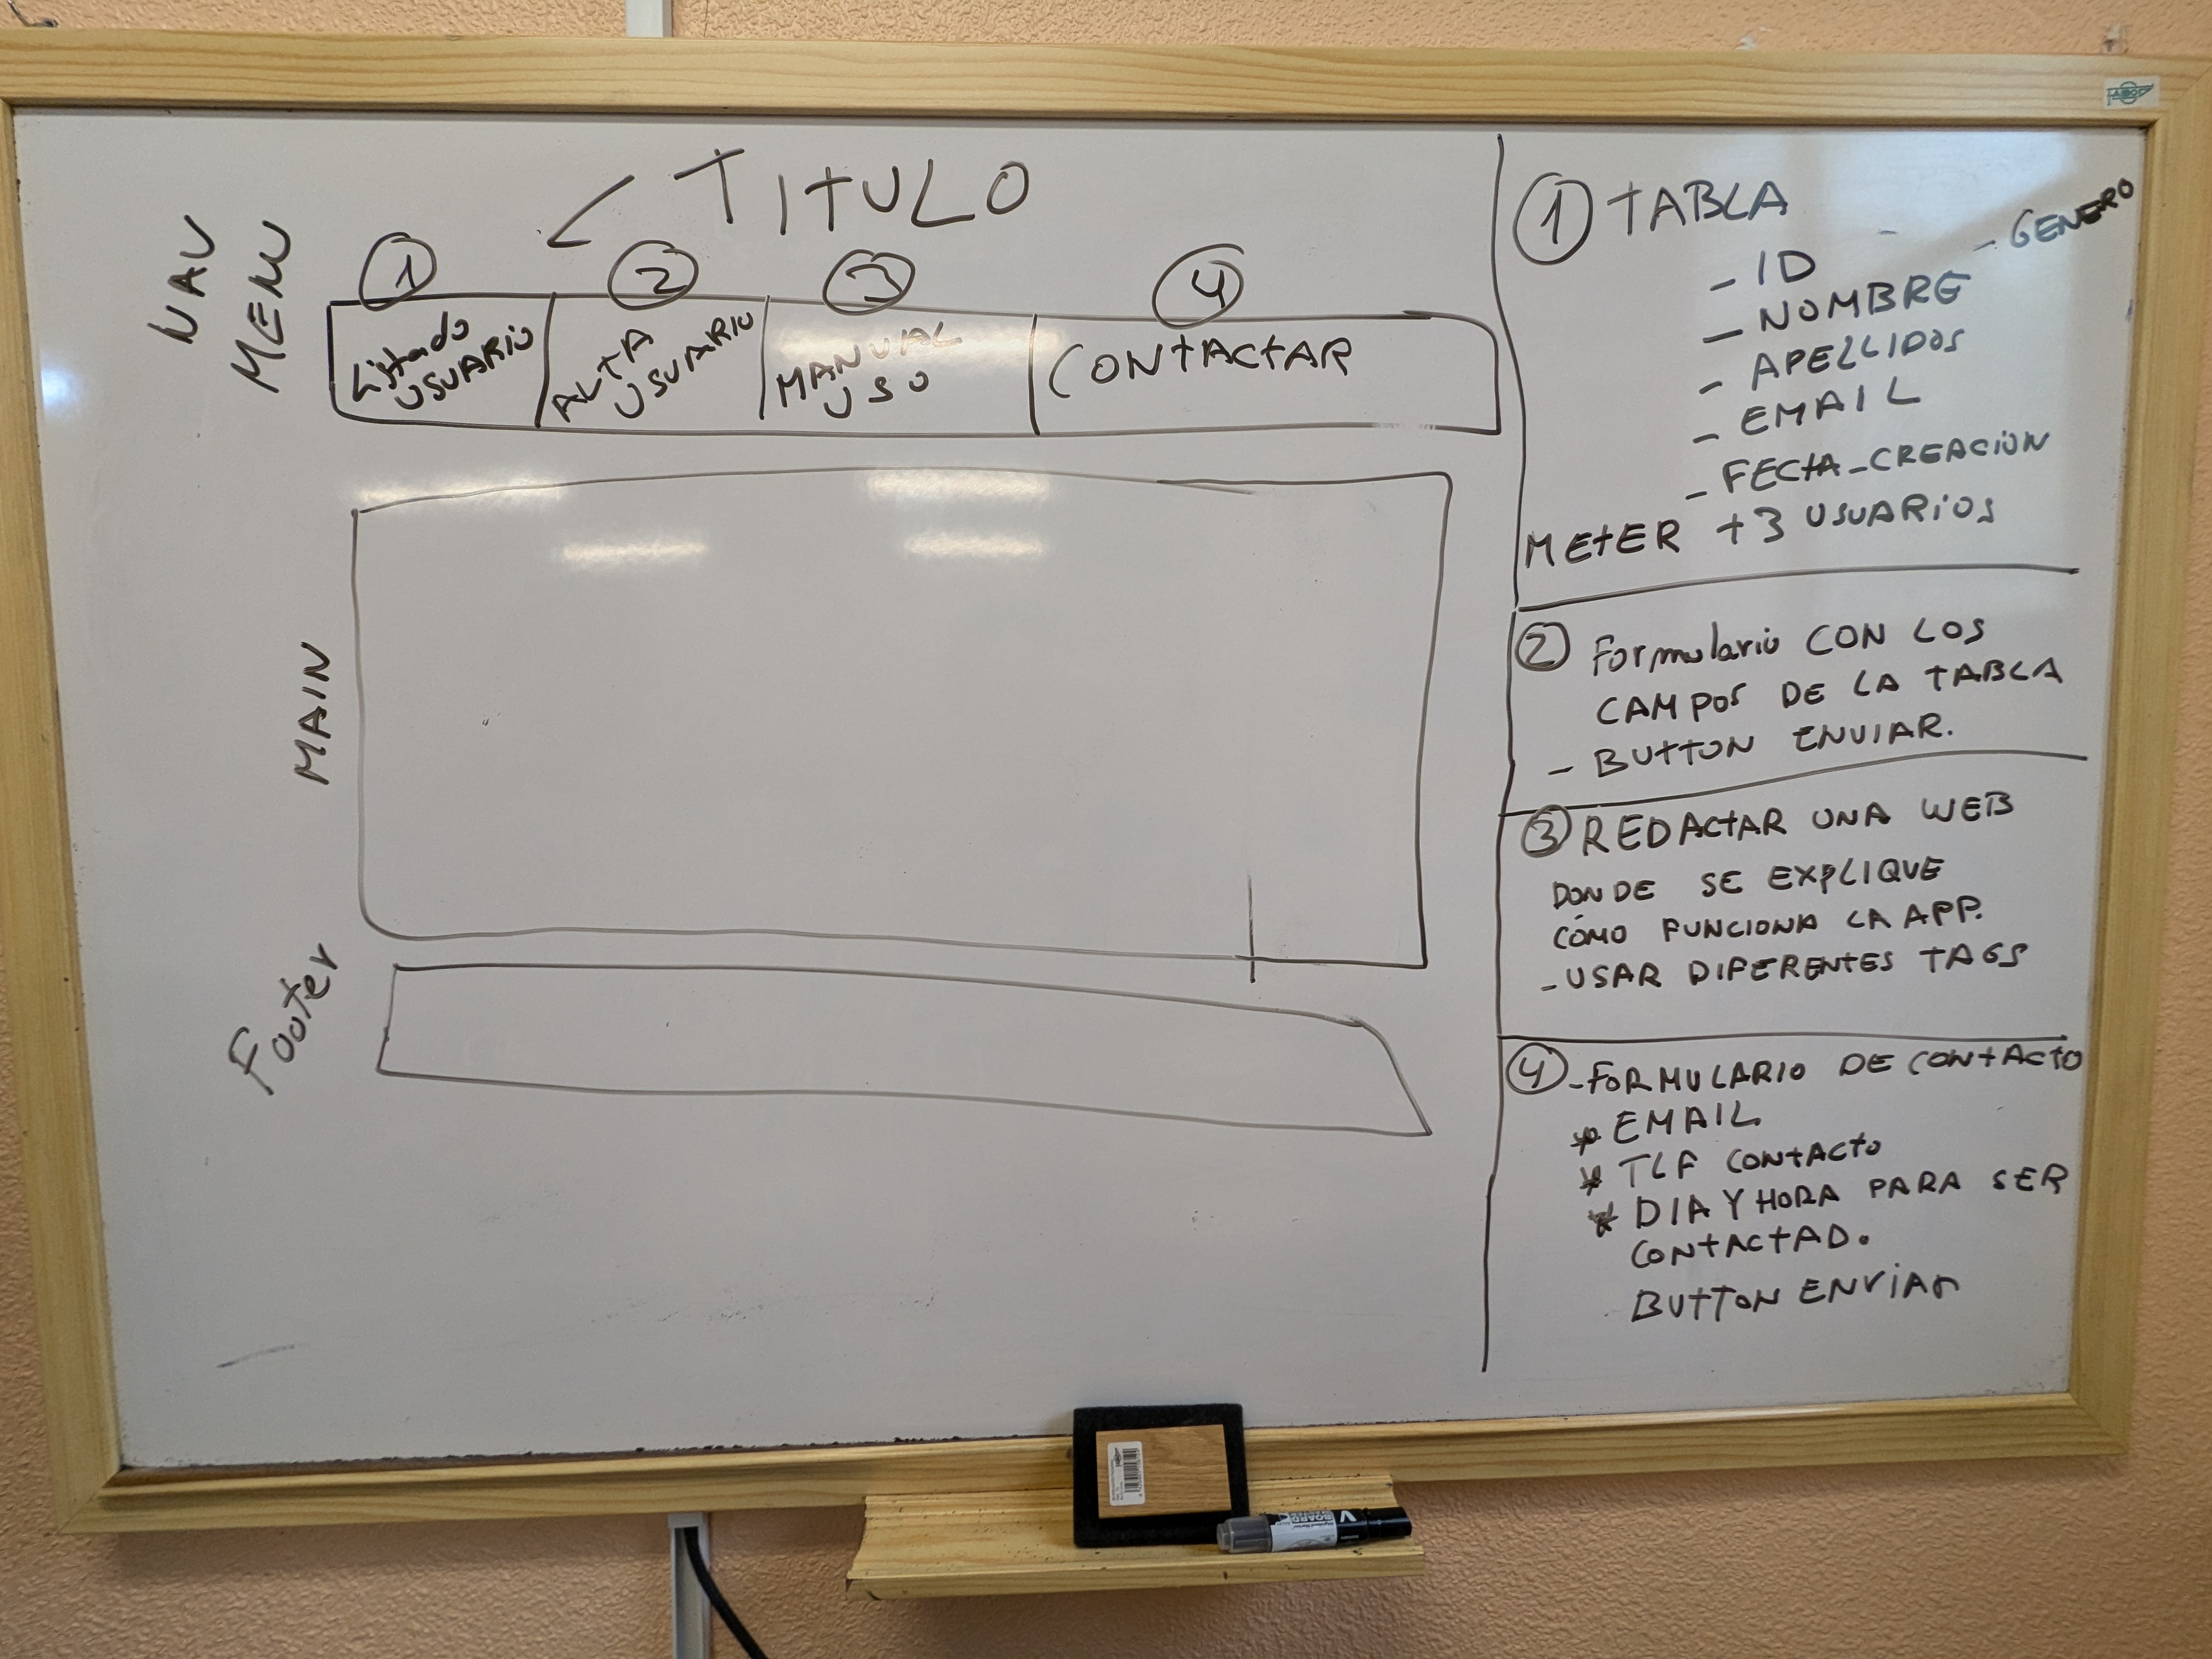 TITULO
NAV
MENU
1
2
3
4
Listado
USUARIO
ALTA
USUARIO
MANUAL
USO
CONTACTAR
MAIN
Footer
1 TABLA
- ID
- GENERO
- NOMBRE
- APELLIDOS
- EMAIL
- FECHA_CREACION
METER +3 USUARIOS
2 Formulario CON LOS
CAMPOS DE LA TABLA
- BUTTON ENVIAR.
3 REDACTAR UNA WEB
DONDE SE EXPLIQUE
CÓMO FUNCIONA LA APP.
- USAR DIFERENTES TAGS
4 - FORMULARIO DE CONTACTO
* EMAIL
* TLF CONTACTO
* DIA Y HORA PARA SER
CONTACTADO.
BUTTON ENVIAR
V BOARD